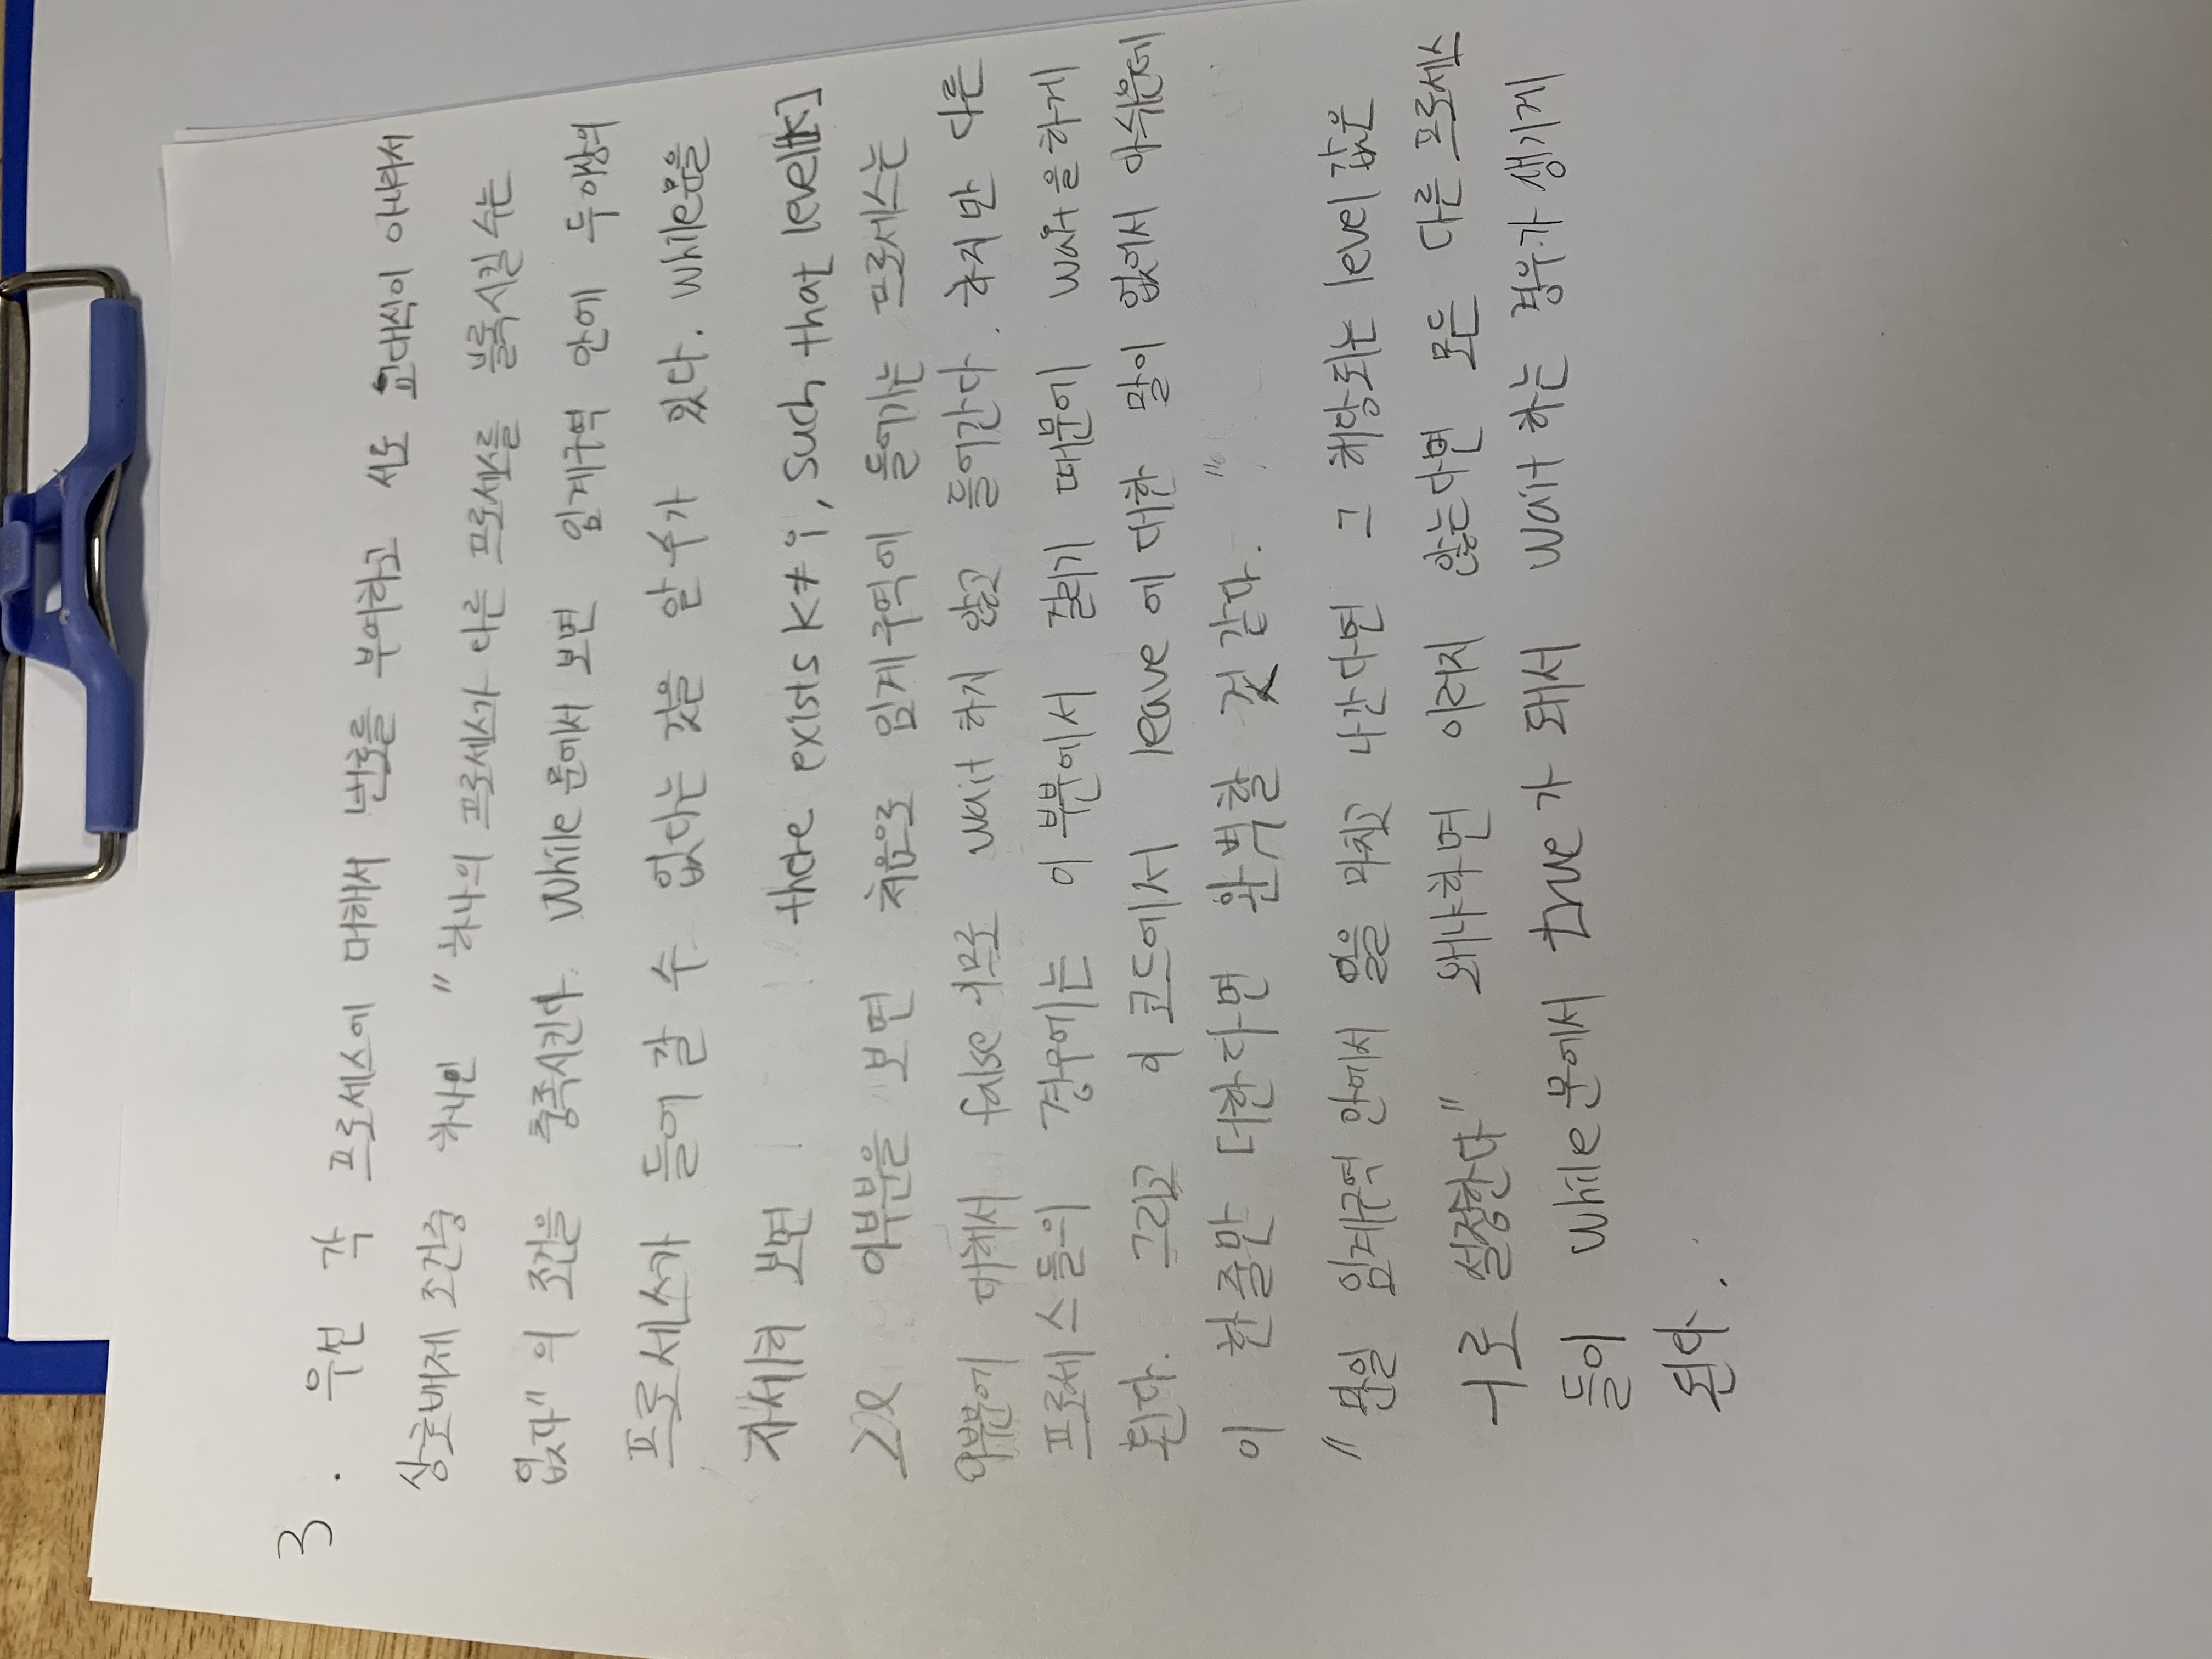 3. 우선 각 프로세스에 대해서 번호를 부여하고 서로 교대식이 아니라서
상호배제 조건중 하나인 "하나의 프로세스가 다른 프로세스를 블록시킬 수는
없다"의 조건을 충족시킨다. While 문에서 보면 임계구역 안에 두 이상의
프로세스가 들어 갈 수 없다는 것을 알 수가 있다. while문을
자세히 보면 there exists k≠i, such that level[k]
≥l 이부분을 보면 처음으로 임계구역에 들어가는 프로세스는
이부분에 대해서 false 이므로 wait 하지 않고 들어간다. 하지만 다른
프로세스들의 경우에는 이 부분에서 걸리기 때문에 wait을 하게
된다. 그리고 이 코드에서 leave 에 대한 말이 없어서 아쉬운데
이 한줄만 더한다면 완벽할 것 같다. "
"만일 임계구역 안에서 일을 마치고 나간다면 그 해당되는 level 값은
-1로 설정한다" 왜냐하면 이러지 않는다면 모든 다른 프로세스
들이 while문에서 true가 돼서 wait 하는 경우가 생기게
된다.